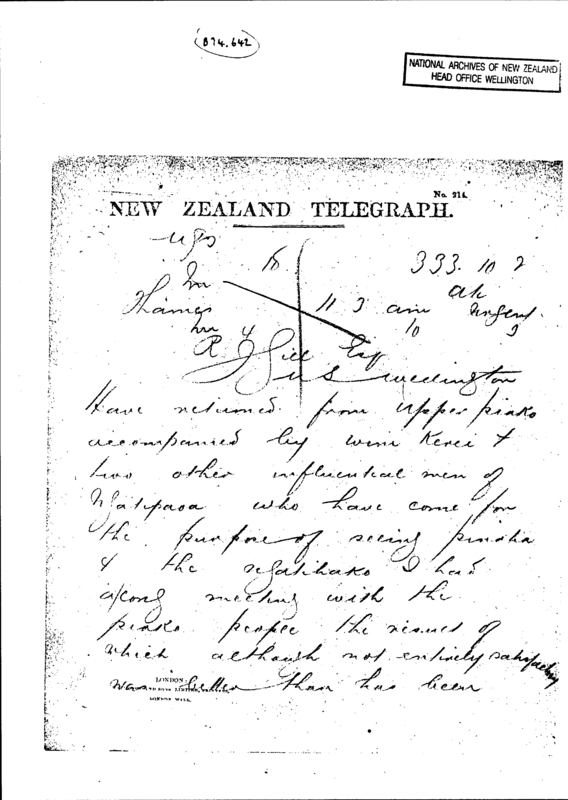 B74.642
NATIONAL ARCHIVES OF NEW ZEALAND
HEAD OFFICE WELLINGTON
No. 214.
NEW ZEALAND TELEGRAPH.
333. 10 2
Thames 11 3 am Urgent
10 3
R J Gill Esq
U S Wellington
Have returned from Upper piako
accompanied by wini Kerei &
two other influential men of
Ngatipaoa who have come for
the purpose of seeing pinoha
& the ngatihako I had
a long meeting with the
piako people the result of
which although not entirely satisfactory
was better than has been
LONDON:
LONDON WALL